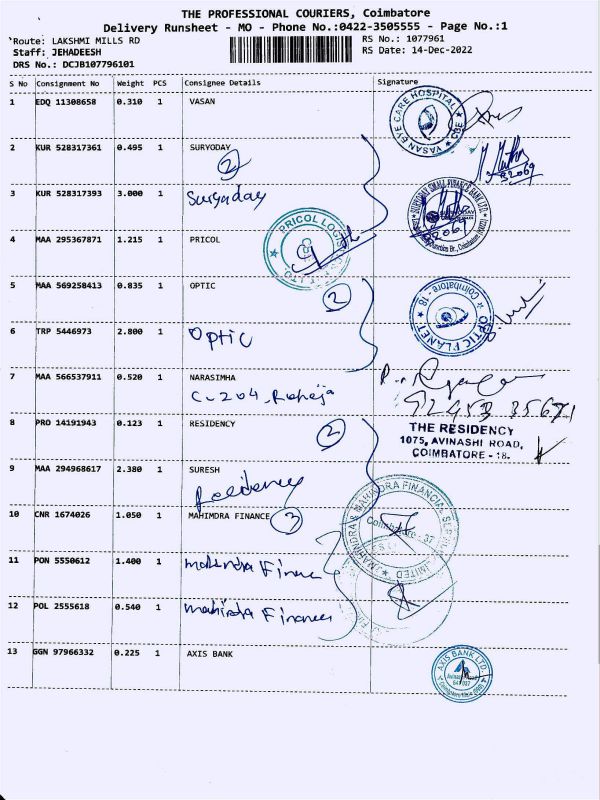 THE PROFESSIONAL COURIERS, Coimbatore
Delivery Runsheet - MO - Phone No.:0422-3505555 - Page No.:1
Route: LAKSHMI MILLS RD
RS No.: 1077961
Staff: JEHADEESH
RS Date: 14-Dec-2022
DRS No.: DCJB107796101
S No Consignment No Weight PCS Consignee Details Signature
1 EDQ 11308658 0.310 1 VASAN
VASAN EYE CARE HOSPITAL CBE
2 KUR 528317361 0.495 1 SURYODAY
2
32069
3 KUR 528317393 3.000 1 Suryoday
4 MAA 295367871 1.215 1 PRICOL
PRICOL
5 MAA 569258413 0.835 1 OPTIC
2
OPTIC PLANET Coimbatore - 18
6 TRP 5446973 2.800 1 Optic
7 MAA 566537911 0.520 1 NARASIMHA
C-204, Raheja
8 PRO 14191943 0.123 1 RESIDENCY
2
THE RESIDENCY
1075, AVINASHI ROAD,
COIMBATORE - 18.
9 MAA 294968617 2.380 1 SURESH
Residency
10 CNR 1674026 1.050 1 MAHIMDRA FINANCE 3
MAHINDRA & MAHINDRA FINANCIAL SERVICES LIMITED
Coimbatore - 37
11 PON 5550612 1.400 1 mahindra Finance
12 POL 2555618 0.540 1 mahindra Finance
13 GGN 97966332 0.225 1 AXIS BANK
AXIS BANK LTD.